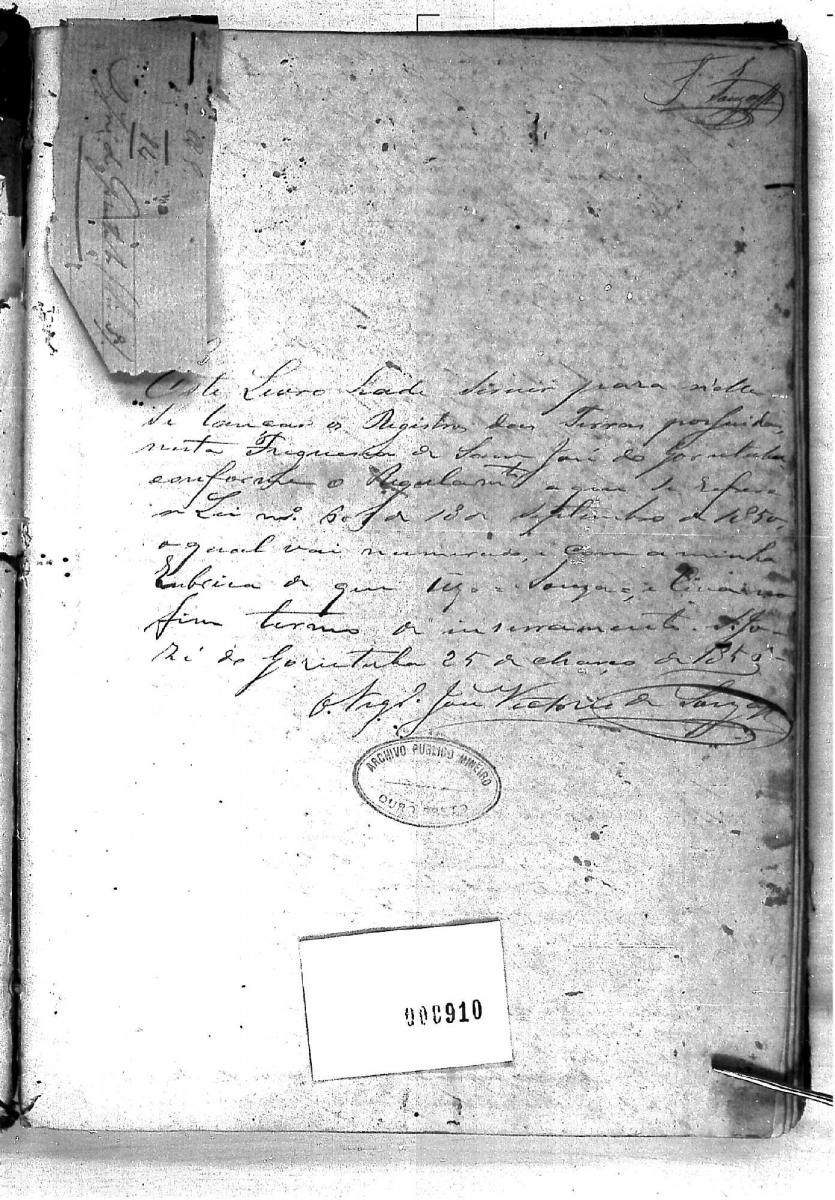 F. 1
Souza
Este Livro hade servir para nelle
se lançar o Registro das Terras possuidas
nesta Freguesia de Sam José do Gorutuba
conforme o Regulamto aque se refere
a Lei nº 601 de 18 de Septembro de 1850,
o qual vai numerado, e com a minha
Rubrica de que uzo = Souza =, e leva no
fim termo de inserramento. S. Jo-
zé do Gorutuba 25 de Março de 185
O Vigrº João Victorio de Souza
ARCHIVO PUBLICO MINEIRO
OURO PRETO
000910